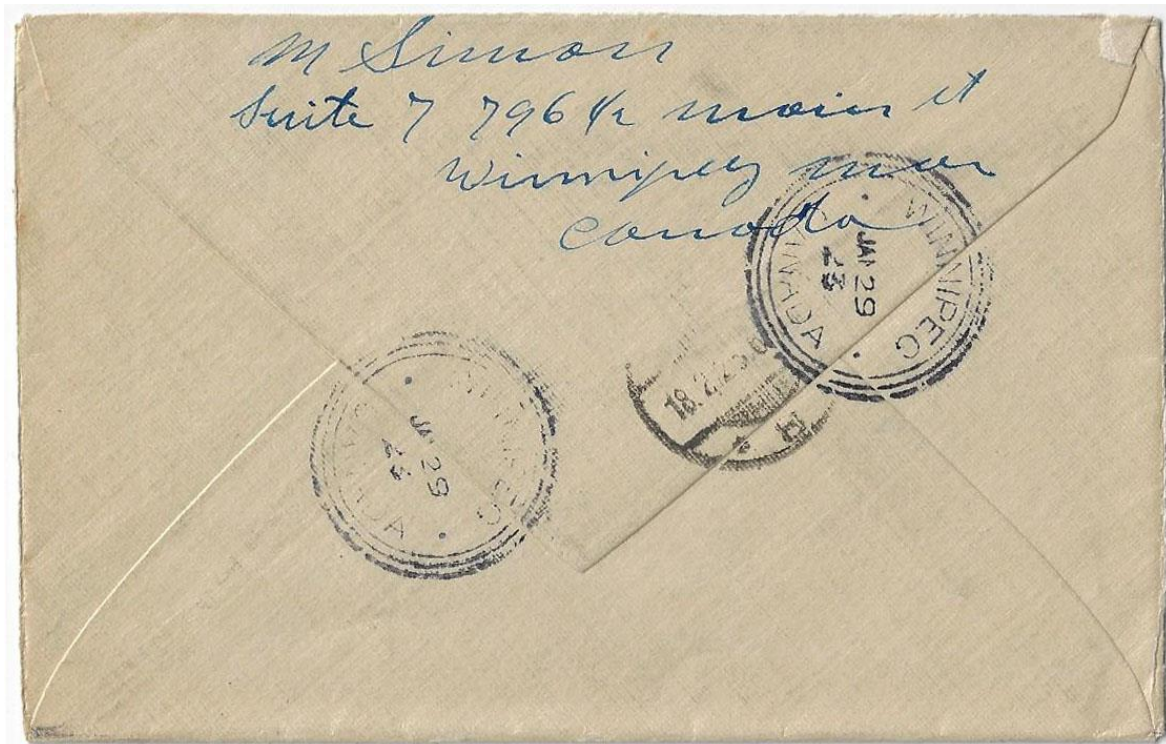 M Simon
Suite 7 796 1/2 main st
Winnipeg man
Canada
WINNIPEG
JAN 29
23
CANADA
18.2.23
WINNIPEG
JAN 29
23
CANADA